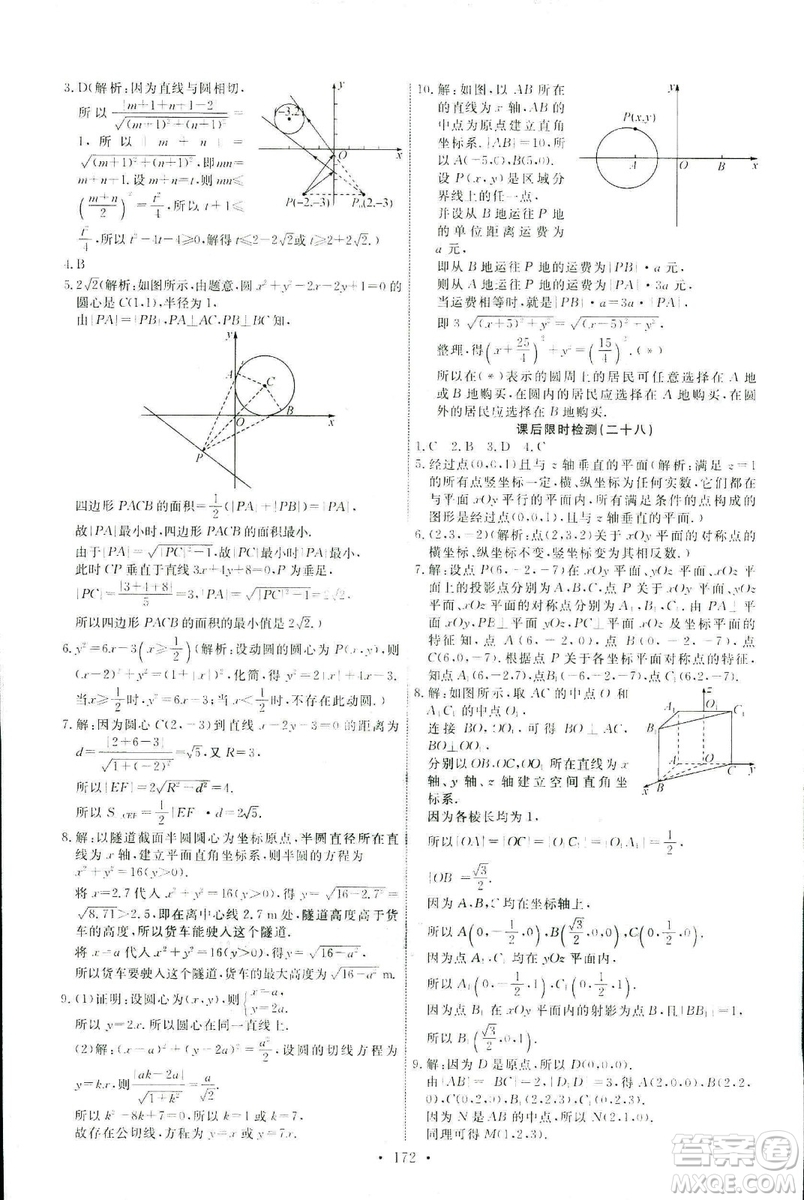 3. D(解析：因为直线与圆相切，
所以 |m+1+n+1-2| / √((m+1)²+(n+1)²) =
1，所以 |m+n| =
√((m+1)²+(n+1)²)，即mn=
m+n+1，设m+n=t，则mn≤
((m+n)/2)²=t²/4，所以 t+1≤
t²/4，所以t²-4t-4≥0，解得t≤2-2√2或t≥2+2√2.)
(-3,2)
y
O
x
P(-2,-3)
P₀(2,-3)
4. B
5. 2√2(解析：如图所示，由题意，圆x²+y²-2x-2y+1=0的
圆心是C(1,1)，半径为1.
由|PA|=|PB|，PA⊥AC，PB⊥BC知，
y
A
C
O
B
x
P
四边形PACB的面积=1/2(|PA|+|PB|)=|PA|.
故|PA|最小时，四边形PACB的面积最小.
由于|PA|=√(|PC|²-1)，故|PC|最小时|PA|最小.
此时CP垂直于直线3x+4y+8=0，P为垂足，
|PC|=|3+4+8|/5=3，|PA|=√(|PC|²-1)=2√2，
所以四边形PACB的面积的最小值是2√2.)
6. y²=6x-3(x≥1/2)(解析：设动圆的圆心为P(x,y)，则
(x-2)²+y²=(|x|+1)²，化简，得y²=2|x|+4x-3.
当x≥1/2时，y²=6x-3；当x<1/2时，无解.)
7. 解：因为圆心C(2,-3)到直线x-2y-3=0的距离为
d=|2+6-3|/√(1+(-2)²)=√5，又R=3，
所以|EF|=2√(R²-d²)=4.
所以S△CEF=1/2|EF|·d=2√5.
8. 解：以隧道截面半圆圆心为坐标原点，半圆直径所在直
线为x轴，建立平面直角坐标系，则半圆的方程为
x²+y²=16(y≥0).
将x=2.7代入x²+y²=16(y≥0)，得y=√(16-2.7²)=
√8.71>2.5，即在离中心线2.7 m处，隧道高度高于货
车的高度，所以货车能驶入这个隧道.
将x=a代入x²+y²=16(y≥0)，得y=√(16-a²).
所以货车要驶入这个隧道，货车的最大高度为√(16-a²) m.
9. (1)证明：设圆心为(x,y)，则{x=a，y=2a.
所以y=2x，所以圆心在同一直线上.
(2)解：(x-a)²+(y-2a)²=a²/2，设圆的切线方程为
y=kx，则|ak-2a|/√(1+k²)=a/√2.
所以k²-8k+7=0，所以k=1或k=7.
故存在公切线，方程为y=x或y=7x.
10. 解：如图，以AB所在
的直线为x轴，AB的
中点为原点建立直角
坐标系.|AB|=10，所
以A(-5,0)，B(5,0).
设P(x,y)是区域分
界线上的任一点，
并设从B地运往P地
的单位距离运费为a元，
y
P(x,y)
A
O
B
x
即从B地运往P地的运费为|PB|·a元.
则从A地运往P地的运费为|PA|·3a元.
当运费相等时，|PB|·a=3a·|PA|.
即3√((x+5)²+y²)=√((x-5)²+y²).
整理，得(x+25/4)²+y²=(15/4)². (*)
所以在(*)表示的圆周上的居民可任意选择在A地
或B地购买，在圆内的居民应选择在A地购买，在圆
外的居民应选择在B地购买.
课后限时检测(二十八)
1. C 2. B 3. D 4. C
5. 经过点(0,0,1)且与z轴垂直的平面(解析：满足z=1
的所有点竖坐标一定，横、纵坐标为任何实数，
与平面xOy平行的平面内，所有满足条件的点构成的
图形是经过点(0,0,1)且与z轴垂直的平面.)
6. (2,3,-2)(解析：点M关于平面xOy的对称点的
横坐标、纵坐标不变，竖坐标变为其相反数.)
7. 解：设点P(6,-2,-7)在xOy平面、yOz平面、xOz平
面上的投影点分别为A,B,C，点P关于xOy平面、
yOz平面、xOz平面的对称点分别为A₁,B₁,C₁，由PA⊥
平面xOy，PB⊥平面yOz，PC⊥平面xOz及坐标平面
的特征知，点A(6,-2,0)，点B(0,-2,-7)，点
C(6,0,-7).根据点P关于各平面对称点的特征，
知点A₁(6,-2,7)，B₁(-6,-2,-7)，C₁(6,2,-7).
8. 解：如图所示，取AC的中点O和
A₁C₁的中点O₁，
连接BO，OO₁，可得BO⊥AC，
OO₁⊥AC，OO₁⊥BO，
分别以OB,OC,OO₁所在直线为x
轴、y轴、z轴建立空间直角坐
标系.
因为各棱长均为1，
所以|OA|=|OC|=|O₁A₁|=|O₁C₁|=1/2，
|OB|=√3/2.
因为A,B,C均在坐标轴上，
所以A(0,-1/2,0)，B(√3/2,0,0)，C(0,1/2,0).
因为点A₁,C₁在yOz平面内，
所以A₁(0,-1/2,1)，C₁(0,1/2,1).
因为点B₁在xOy平面内的射影为点B，且|BB₁|=1，
所以B₁(√3/2,0,1).
9. 解：因为D是原点，所以D(0,0,0).
由|AB|=|BC|=|D₁D|=2，得A(2,0,0)，B(2,2,
0)，C(0,2,0)，B₁(2,2,2)，D₁(0,0,2).
因为N是AB的中点，所以N(2,1,0).
同理可得M(1,2,0).
· 172 ·
答案圈
MXQE.COM